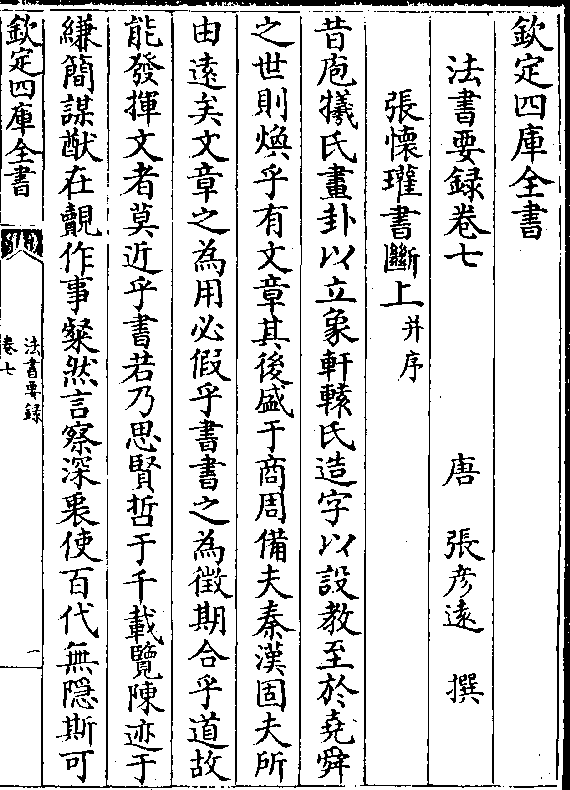 欽定四庫全書
法書要録卷七　唐　張彦遠　撰
張懷瓘書斷上并序
昔庖犧氏畫卦以立象軒轅氏造字以設教至於堯舜
之世則煥乎有文章其後盛于商周備夫秦漢固夫所
由遠矣文章之為用必假乎書書之為徵期合乎道故
能發揮文者莫近乎書若乃思賢哲于千載覽陳迹于
縑簡謀猷在覿作事粲然言察深衷使百代無隱斯可
欽定四庫全書
法書要録
卷七
一